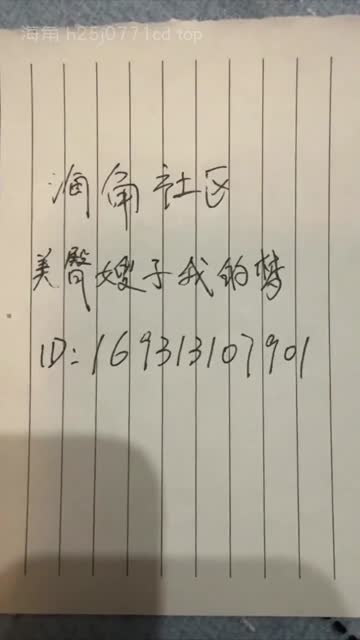 海角 h25j0771cd.top
海角社区
美臀嫂子我的梦
ID:169313107901